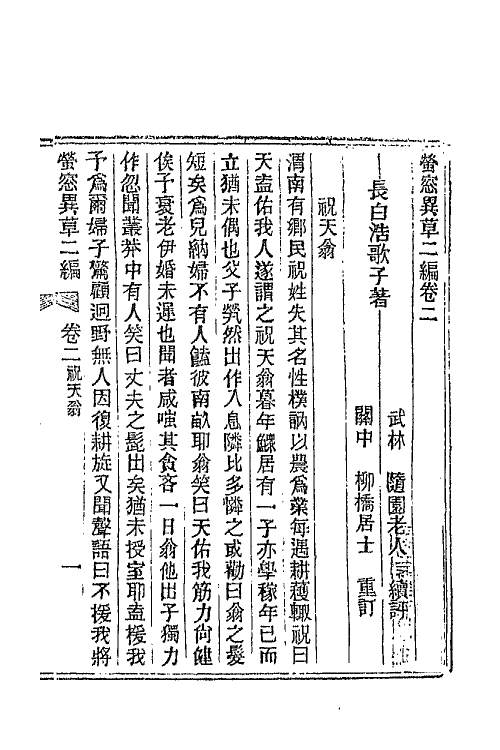 螢窓異草二編卷二
武林 隨園老人 續評
長白浩歌子著
關中 柳橋居士 重訂
祝天翁
渭南有鄉民祝姓失其名性樸訥以農爲業每遇耕穫輒祝曰
天盍佑我人遂謂之祝天翁暮年鰥居有一子亦學稼年已而
立猶未偶也父子煢然出作入息隣比多憐之或勸曰翁之髮
短矣爲兒納婦不有人饁彼南畝耶翁笑曰天佑我筋力尙健
俟子衰老伊婚未遲也聞者咸嗤其貪吝一日翁他出子獨力
作忽聞叢莽中有人笑曰丈夫之髭出矣猶未授室耶盍援我
予爲爾婦子驚顧迥野無人因復耕旋又聞聲語曰不援我將
螢窓異草二編 卷二 祝天翁 一